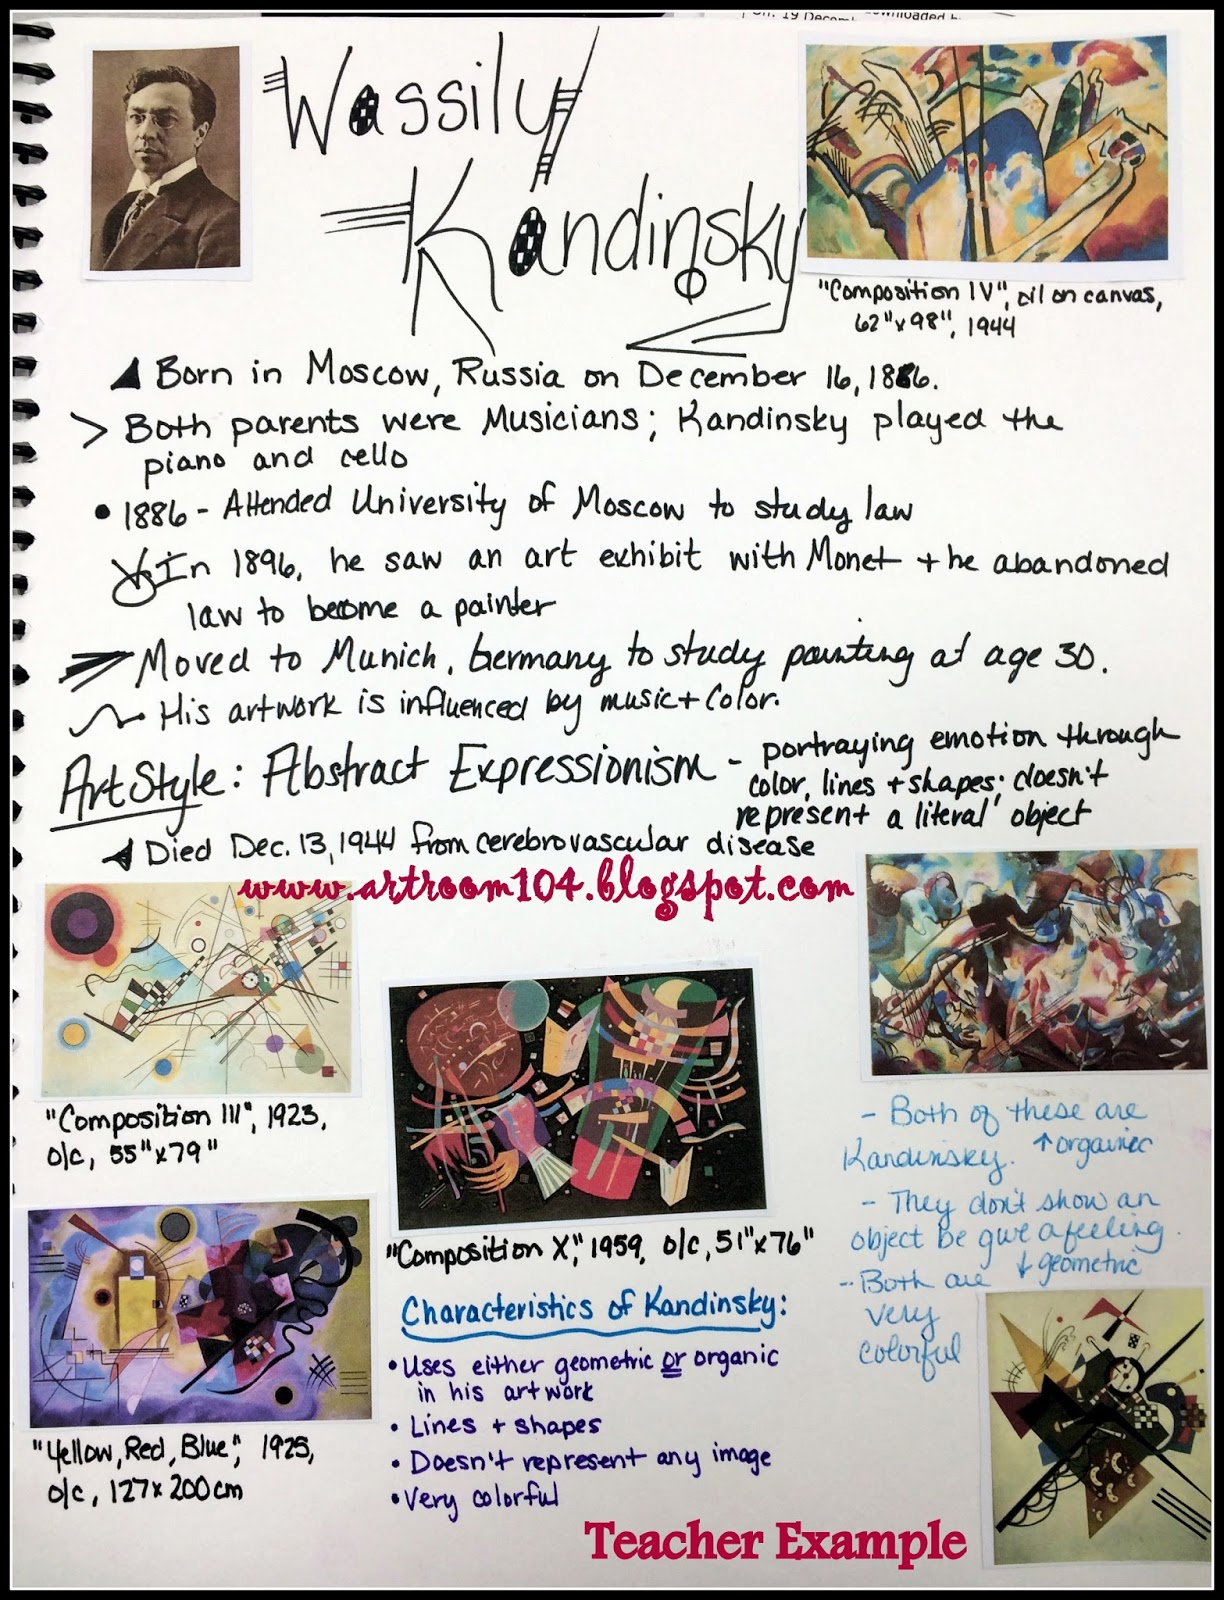 Wassily
Kandinsky
"Composition IV", oil on canvas,
62"x98", 1944
Born in Moscow, Russia on December 16, 1866.
Both parents were Musicians; Kandinsky played the
piano and cello
1886 - Attended University of Moscow to study law
In 1896, he saw an art exhibit with Monet + he abandoned
law to become a painter
Moved to Munich, Germany to study painting at age 30.
His artwork is influenced by music + color.
Art Style: Abstract Expressionism - portraying emotion through
color, lines + shapes; doesn't
represent a 'literal' object
Died Dec. 13, 1944 from cerebrovascular disease
www.artroom104.blogspot.com
"Composition III", 1923,
o/c, 55"x79"
"Composition X", 1959, o/c, 51"x76"
"Yellow, Red, Blue", 1925,
o/c, 127x200cm
Characteristics of Kandinsky:
• Uses either geometric or organic
in his artwork
• Lines + shapes
• Doesn't represent any image
• Very colorful
- Both of these are
Kandinsky. ↑ orgainic
- They don't show an
object be give a feeling.
- Both are ↓ geometric
very
colorful
Teacher Example